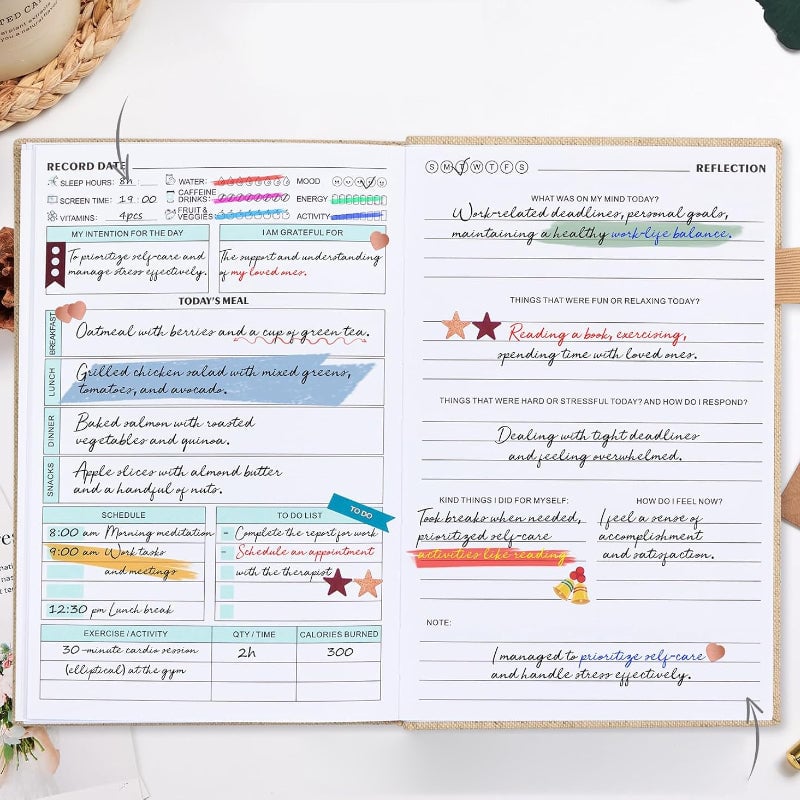 RECORD DATE
SLEEP HOURS: 8h
WATER:
MOOD
SCREEN TIME: 19:00
CAFFEINE DRINKS:
ENERGY
VITAMINS: 4pcs
FRUIT & VEGGIES
ACTIVITY
MY INTENTION FOR THE DAY
To prioritize self-care and
manage stress effectively.
I AM GRATEFUL FOR
The support and understanding
of my loved ones.
TODAY'S MEAL
BREAKFAST
Oatmeal with berries and a cup of green tea.
LUNCH
Grilled chicken salad with mixed greens,
tomatoes, and avocado.
DINNER
Baked salmon with roasted
vegetables and quinoa.
SNACKS
Apple slices with almond butter
and a handful of nuts.
SCHEDULE
8:00 am Morning meditation
9:00 am Work tasks
and meetings
12:30 pm Lunch break
TO DO LIST
TO DO
- Complete the report for work
- Schedule an appointment
with the therapist
EXERCISE / ACTIVITY QTY / TIME CALORIES BURNED
30-minute cardio session 2h 300
(elliptical) at the gym
S M T W T F S
REFLECTION
WHAT WAS ON MY MIND TODAY?
Work-related deadlines, personal goals,
maintaining a healthy work-life balance.
THINGS THAT WERE FUN OR RELAXING TODAY?
Reading a book, exercising,
spending time with loved ones.
THINGS THAT WERE HARD OR STRESSFUL TODAY? AND HOW DO I RESPOND?
Dealing with tight deadlines
and feeling overwhelmed.
KIND THINGS I DID FOR MYSELF:
Took breaks when needed,
prioritized self-care
activities like reading
HOW DO I FEEL NOW?
I feel a sense of
accomplishment
and satisfaction.
NOTE:
I managed to prioritize self-care
and handle stress effectively.